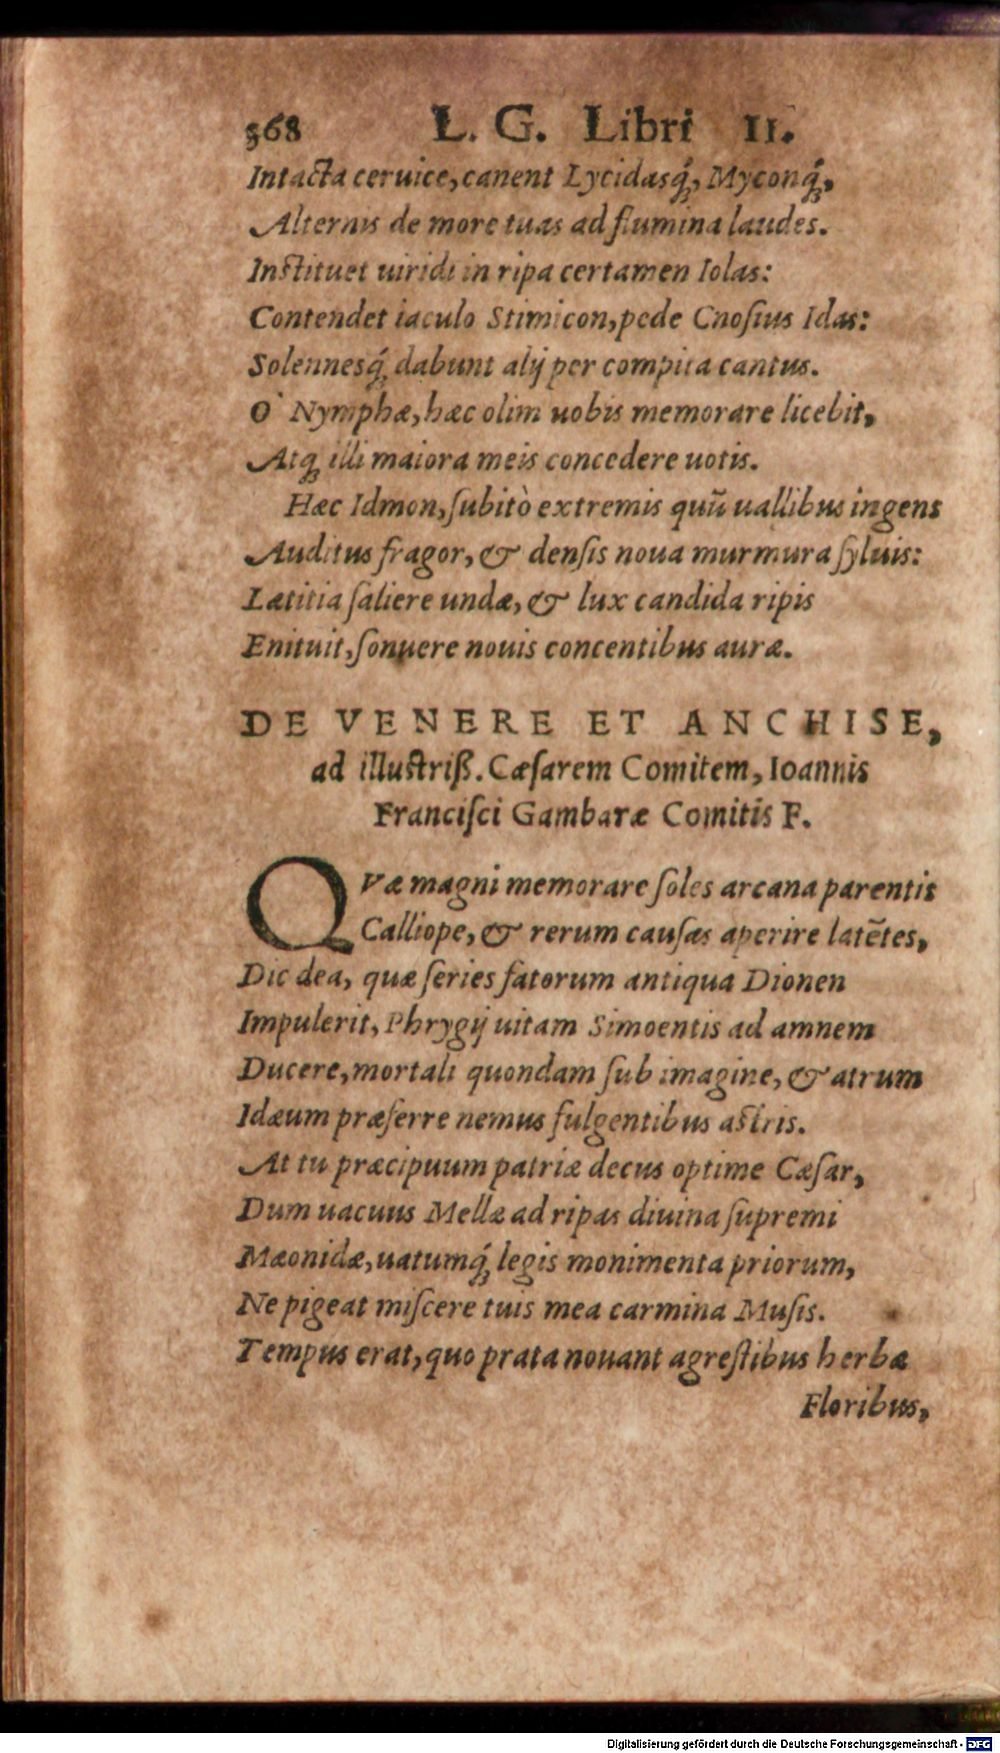 568 L. G. Libri II.
Intacta ceruice, canent Lycidasq́;, Myconq́;,
Alternis de more tuas ad flumina laudes.
Instituet uiridi in ripa certamen Iolas:
Contendet iaculo Stimicon, pede Cnosius Idas:
Solennesq́; dabunt alij per compita cantus.
O` Nymphæ, hæc olim uobis memorare licebit,
Atq; illi maiora meis concedere uotis.
Hæc Idmon, subitò extremis quū uallibus ingens
Auditus fragor, & densis noua murmura syluis:
Lætitia saliere undæ, & lux candida ripis
Enituit, sonuere nouis concentibus auræ.
DE VENERE ET ANCHISE,
ad illustriß. Cæsarem Comitem, Ioannis
Francisci Gambaræ Comitis F.
QVæ magni memorare soles arcana parentis
Calliope, & rerum causas aperire latētes,
Dic dea, quæ series fatorum antiqua Dionen
Impulerit, Phrygij uitam Simoentis ad amnem
Ducere, mortali quondam sub imagine, & atrum
Idæum præferre nemus fulgentibus astris.
At tu præcipuum patriæ decus optime Cæsar,
Dum uacuus Mellæ ad ripas diuina supremi
Mæonidæ, uatumq́; legis monimenta priorum,
Ne pigeat miscere tuis mea carmina Musis.
Tempus erat, quo prata nouant agrestibus herbæ
Floribus,
Digitalisierung gefördert durch die Deutsche Forschungsgemeinschaft - DFG